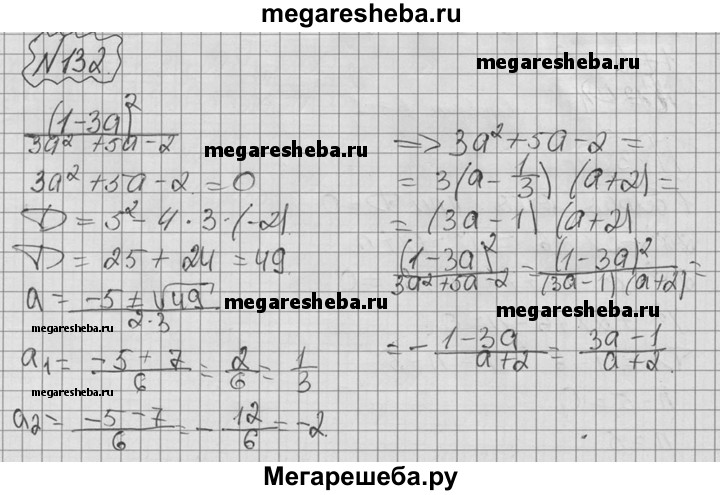 megaresheba.ru
N132
megaresheba.ru
(1-3a)²
3a² +5a-2
megaresheba.ru
3a²+5a-2=0
D=5²-4·3·(-2)
D=25+24=49
a= -5±√49
2·3
megaresheba.ru
megaresheba.ru
a₁= -5+7 = 2 = 1
6 6 3
megaresheba.ru
a₂= -5-7 =- 12 =-2
6 6
=> 3a²+5a-2 =
= 3(a- 1/3) (a+2) =
= (3a-1) (a+2)
(1-3a)² = (1-3a)² =
3a²+5a-2 (3a-1)(a+2)
megaresheba.ru
=- 1-3a = 3a-1
a+2 a+2
Мегарешеба.ру